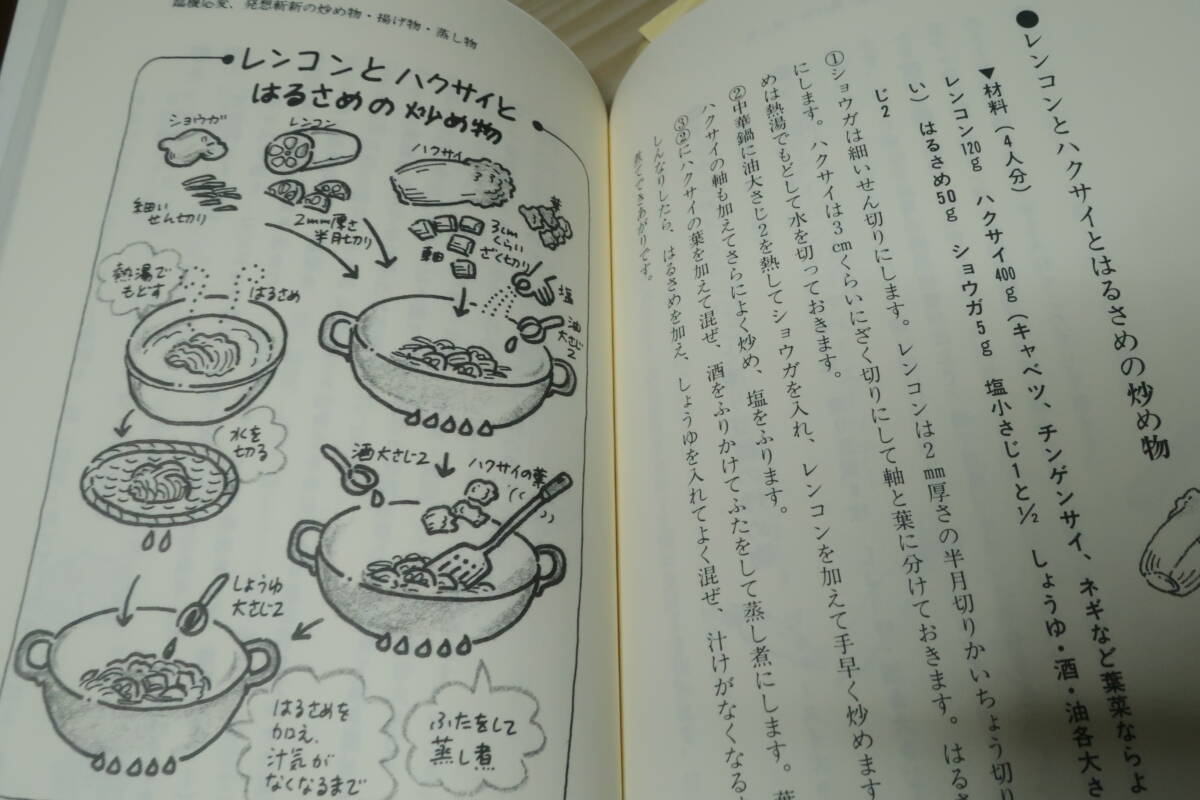 臨機応変、発想斬新の炒め物・揚げ物・蒸し物
レンコンとハクサイと
はるさめの炒め物
ショウガ
レンコン
ハクサイ
細い
せん切り
2mm厚さ
半月切り
3cm
くらい
ざく切り
葉
軸
塩
油
大さじ2
熱湯で
もどす
はるさめ
水を
切る
酒大さじ2
ハクサイの葉
しょうゆ
大さじ2
はるさめを
加え、
汁気が
なくなるまで
ふたをして
蒸し煮
●レンコンとハクサイとはるさめの炒め物
▼材料（4人分）
レンコン120g ハクサイ400g（キャベツ、チンゲンサイ、ネギなど葉菜ならよ
い） はるさめ50g ショウガ5g 塩小さじ1と1/2 しょうゆ・酒・油各大さ
じ2
①ショウガは細いせん切りにします。レンコンは2mm厚さの半月切りかいちょう切り
にします。ハクサイは3cmくらいにざく切りにして軸と葉に分けておきます。はるさ
めは熱湯でもどして水を切っておきます。
②中華鍋に油大さじ2を熱してショウガを入れ、レンコンを加えて手早く炒めます
ハクサイの軸も加えてさらによく炒め、塩をふります。
③②にハクサイの葉を加えて混ぜ、酒をふりかけてふたをして蒸し煮にします。葉
しんなりしたら、はるさめを加え、しょうゆを入れてよく混ぜ、汁けがなくなる
煮てできあがりです。